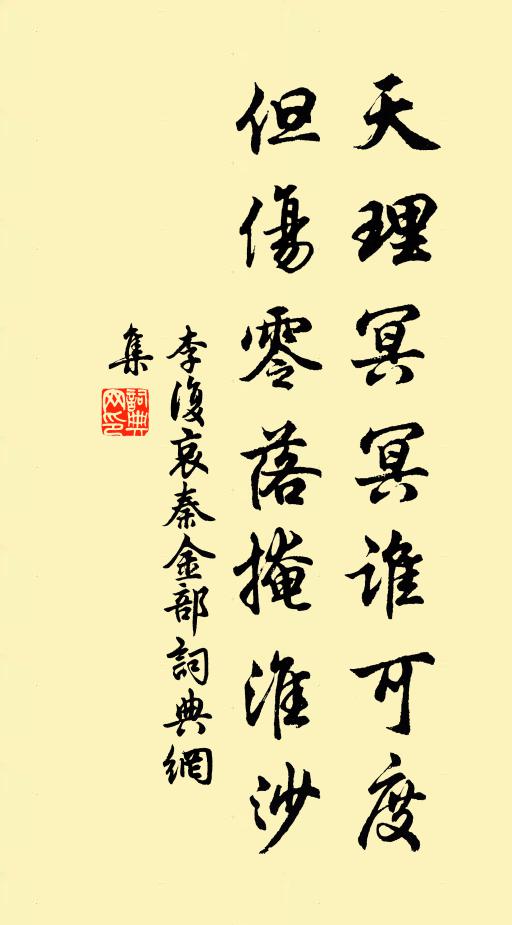 天理冥冥誰可度
但傷零落掩淮沙
李復哀秦金部詞典網
集
詞典網印